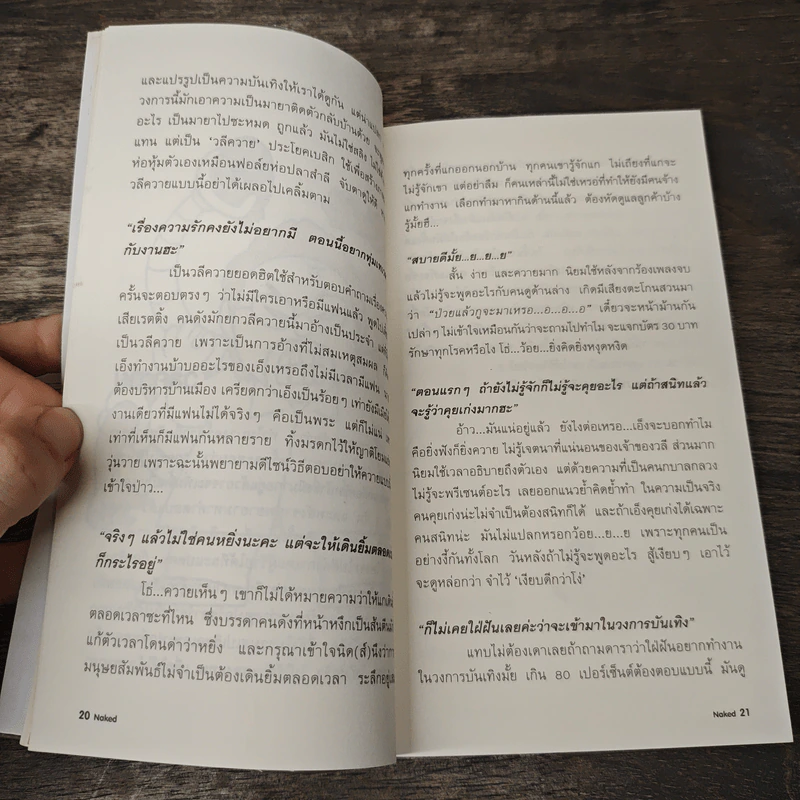 และแปรรูปเป็นความบันเทิงให้เราได้ดูกัน แต่
วงการนี้มักเอาความเป็นมายาติดตัวกลับบ้านด้วย
อะไร เป็นมายาไปซะหมด ถูกแล้ว มันไม่ใช่สลิง
แทน แต่เป็น ‘วลีควาย’ ประโยคเบสิก ใช้เพื่อสร้าง
ห่อหุ้มตัวเองเหมือนฟอล์ยห่อปลาสำลี จับตาดูให้ดี
วลีควายแบบนี้อย่าได้เผลอไปเคลิ้มตาม
“เรื่องความรักคงยังไม่อยากมี ตอนนี้อยากทุ่มเท
กับงานฮะ”
เป็นวลีควายยอดฮิตใช้สำหรับตอบคำถามเรื่อง
ครั้นจะตอบตรงๆ ว่าไม่มีใครเอาหรือมีแฟนแล้ว
เสียเรตติ้ง คนดังมักยกวลีควายนี้มาอ้างเป็นประจำ
เป็นวลีควาย เพราะเป็นการอ้างที่ไม่สมเหตุสมผล
เอ็งทำงานบ้าบออะไรของเอ็งเหรอถึงไม่มีเวลามีแฟน
ต้องบริหารบ้านเมือง เครียดกว่าเอ็งเป็นร้อยๆ เท่ายังมี
งานเดียวที่มีแฟนไม่ได้จริงๆ คือเป็นพระ แต่ก็ไม่แน่
เท่าที่เห็นก็มีแฟนกันหลายราย ทั้งมรดกไว้ให้ญาติโยม
วุ่นวาย เพราะฉะนั้นพยายามดีไซน์วิธีตอบอย่าให้ควายแบบ
เข้าใจป่าว...
“จริงๆ แล้วไม่ใช่คนหยิ่งนะคะ แต่จะให้เดินยิ้มตลอด
ก็กระไรอยู่”
โธ่...ควายเห็นๆ เขาก็ไม่ได้หมายความว่าให้แก
ตลอดเวลาซะที่ไหน ซึ่งบรรดาคนดังที่หน้าหงิกเป็นสันตีน
แก้ตัวเวลาโดนด่าว่าหยิ่ง และกรุณาเข้าใจนิด(ส์)นึงว่า
มนุษยสัมพันธ์ไม่จำเป็นต้องเดินยิ้มตลอดเวลา ระลึกอยู่
20 Naked
ทุกครั้งที่แกออกนอกบ้าน ทุกคนเขารู้จักแก ไม่เถียงที่แกจะ
ไม่รู้จักเขา แต่อย่าลืม ก็คนเหล่านี้ไม่ใช่เหรอที่ทำให้ยังมีคนจ้าง
แกทำงาน เลือกทำมาหากินด้านนี้แล้ว ต้องหัดดูแลลูกค้าบ้าง
รู้มั้ยฮึ...
“สบายดีมั้ย...ย...ย...ย”
สั้น ง่าย และควายมาก นิยมใช้หลังจากร้องเพลงจบ
แล้วไม่รู้จะพูดอะไรกับคนดูด้านล่าง เกิดมีเสียงตะโกนสวนมา
ว่า “ป่วยแล้วกูจะมาเหรอ...อ...อ...อ” เดี๋ยวจะหน้าม้านกัน
เปล่าๆ ไม่เข้าใจเหมือนกันว่าจะถามไปทำไม จะแจกบัตร 30 บาท
รักษาทุกโรคหรือไง โธ่...ว้อย...ยิ่งคิดยิ่งหงุดหงิด
“ตอนแรกๆ ถ้ายังไม่รู้จักก็ไม่รู้จะคุยอะไร แต่ถ้าสนิทแล้ว
จะรู้ว่าคุยเก่งมากฮะ”
อ้าว...มันแน่อยู่แล้ว ยังไงต่อเหรอ...เอ็งจะบอกทำไม
คือยิ่งฟังก็ยิ่งควาย ไม่รู้เจตนาที่แน่นอนของเจ้าของวลี ส่วนมาก
นิยมใช้เวลาอธิบายถึงตัวเอง แต่ด้วยความที่เป็นคนกบาลกลวง
ไม่รู้จะพรีเซนต์อะไร เลยออกแนวย้ำคิดย้ำทำ ในความเป็นจริง
คนคุยเก่งน่ะไม่จำเป็นต้องสนิทก็ได้ และถ้าเอ็งคุยเก่งได้เฉพาะ
คนสนิทน่ะ มันไม่แปลกหรอกว้อย...ย...ย เพราะทุกคนเป็น
อย่างงี้กันทั้งโลก วันหลังถ้าไม่รู้จะพูดอะไร สู้เงียบๆ เอาไว้
จะดูหล่อกว่า จำไว้ ‘เงียบดีกว่าโง่’
“ก็ไม่เคยใฝ่ฝันเลยค่ะว่าจะเข้ามาในวงการบันเทิง”
แทบไม่ต้องเดาเลยถ้าถามดาราว่าใฝ่ฝันอยากทำงาน
ในวงการบันเทิงมั้ย เกิน 80 เปอร์เซ็นต์ต้องตอบแบบนี้ มันดู
Naked 21